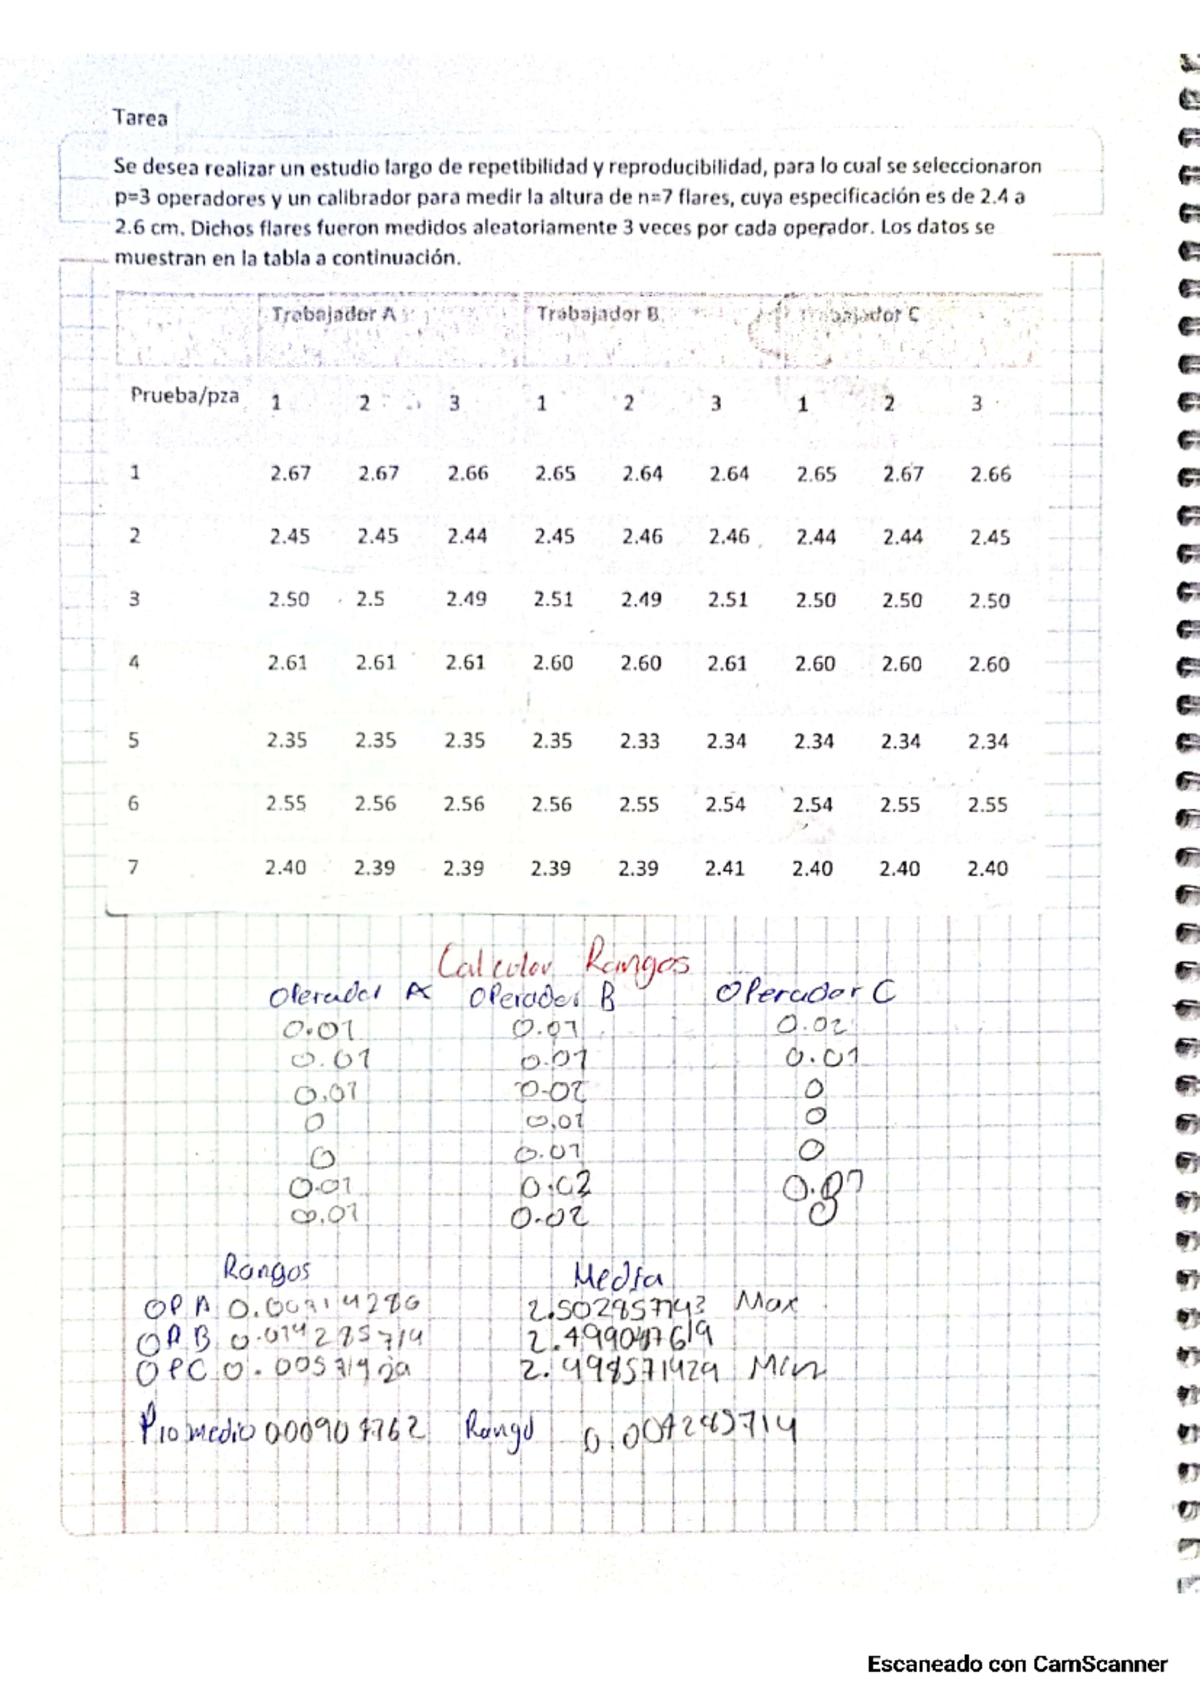 Tarea
Se desea realizar un estudio largo de repetibilidad y reproducibilidad, para lo cual se seleccionaron
p=3 operadores y un calibrador para medir la altura de n=7 flares, cuya especificación es de 2.4 a
2.6 cm. Dichos flares fueron medidos aleatoriamente 3 veces por cada operador. Los datos se
muestran en la tabla a continuación.
Trabajador A Trabajador B Trabajador C
Prueba/pza 1 2 3 1 2 3 1 2 3
1 2.67 2.67 2.66 2.65 2.64 2.64 2.65 2.67 2.66
2 2.45 2.45 2.44 2.45 2.46 2.46 2.44 2.44 2.45
3 2.50 2.5 2.49 2.51 2.49 2.51 2.50 2.50 2.50
4 2.61 2.61 2.61 2.60 2.60 2.61 2.60 2.60 2.60
5 2.35 2.35 2.35 2.35 2.33 2.34 2.34 2.34 2.34
6 2.55 2.56 2.56 2.56 2.55 2.54 2.54 2.55 2.55
7 2.40 2.39 2.39 2.39 2.39 2.41 2.40 2.40 2.40
Calcular Rangos
Operador A Operador B Operador C
0.01 0.01 0.02
0.01 0.01 0.01
0.01 0.02 0
0 0.01 0
0 0.01 0
0.01 0.02 0.01
0.01 0.02 0
Rangos Media
OP A 2.502857143 Max
OP B 0.014285714 2.499047619
OPC 2.498571429 Min
Promedio Rango 0.004285714
Escaneado con CamScanner